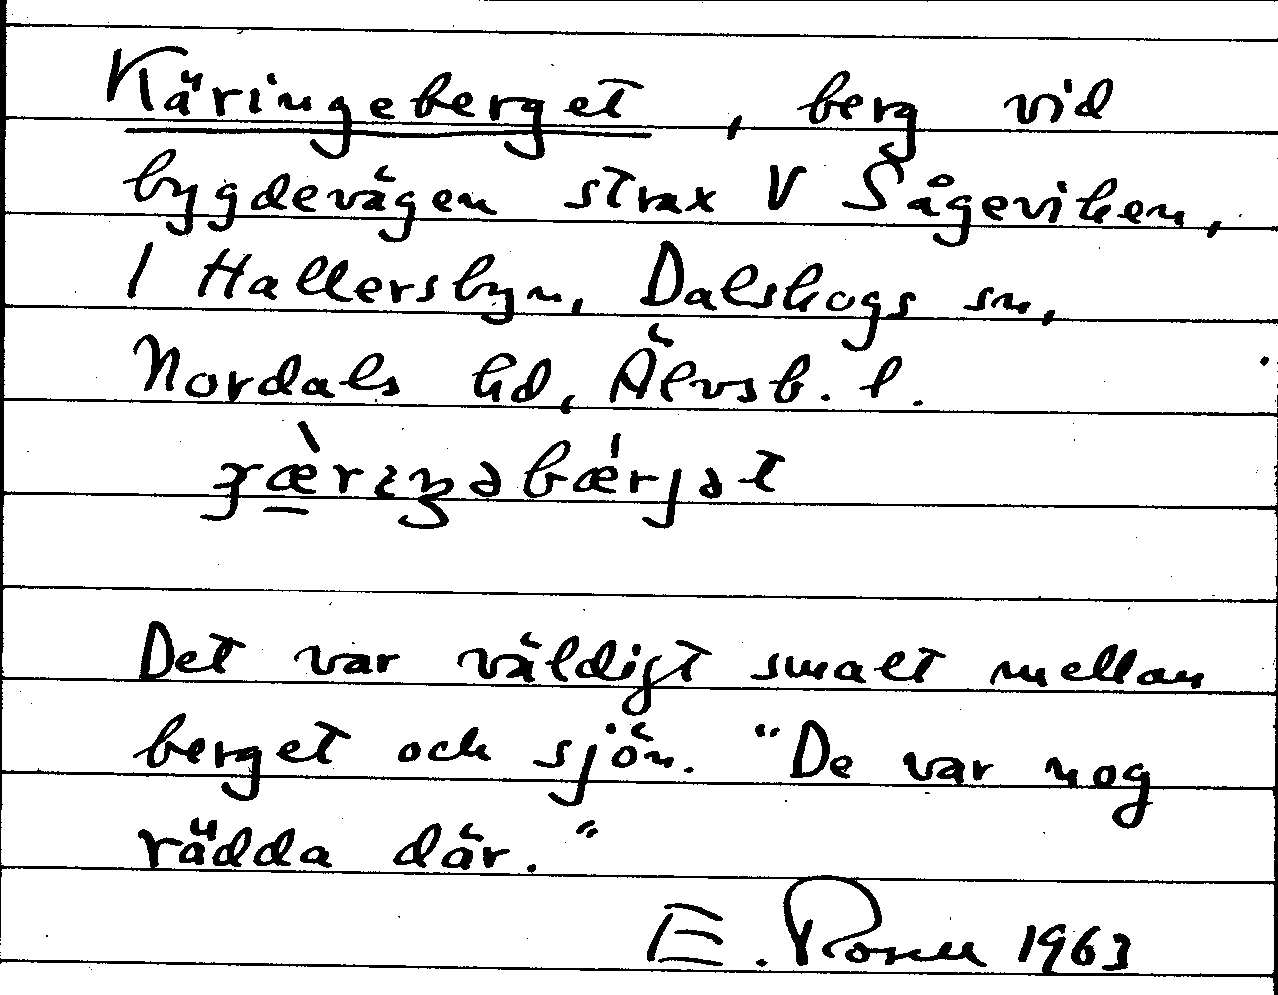 Käringeberget, berg vid
bygdevägen strax V Sågeviken,
I Hallersbyn, Dalskogs sn,
Nordals hd, Älvsb. l.
Det var väldigt smalt mellan
berget och sjön. "De var nog
rädda där."
E. 1963